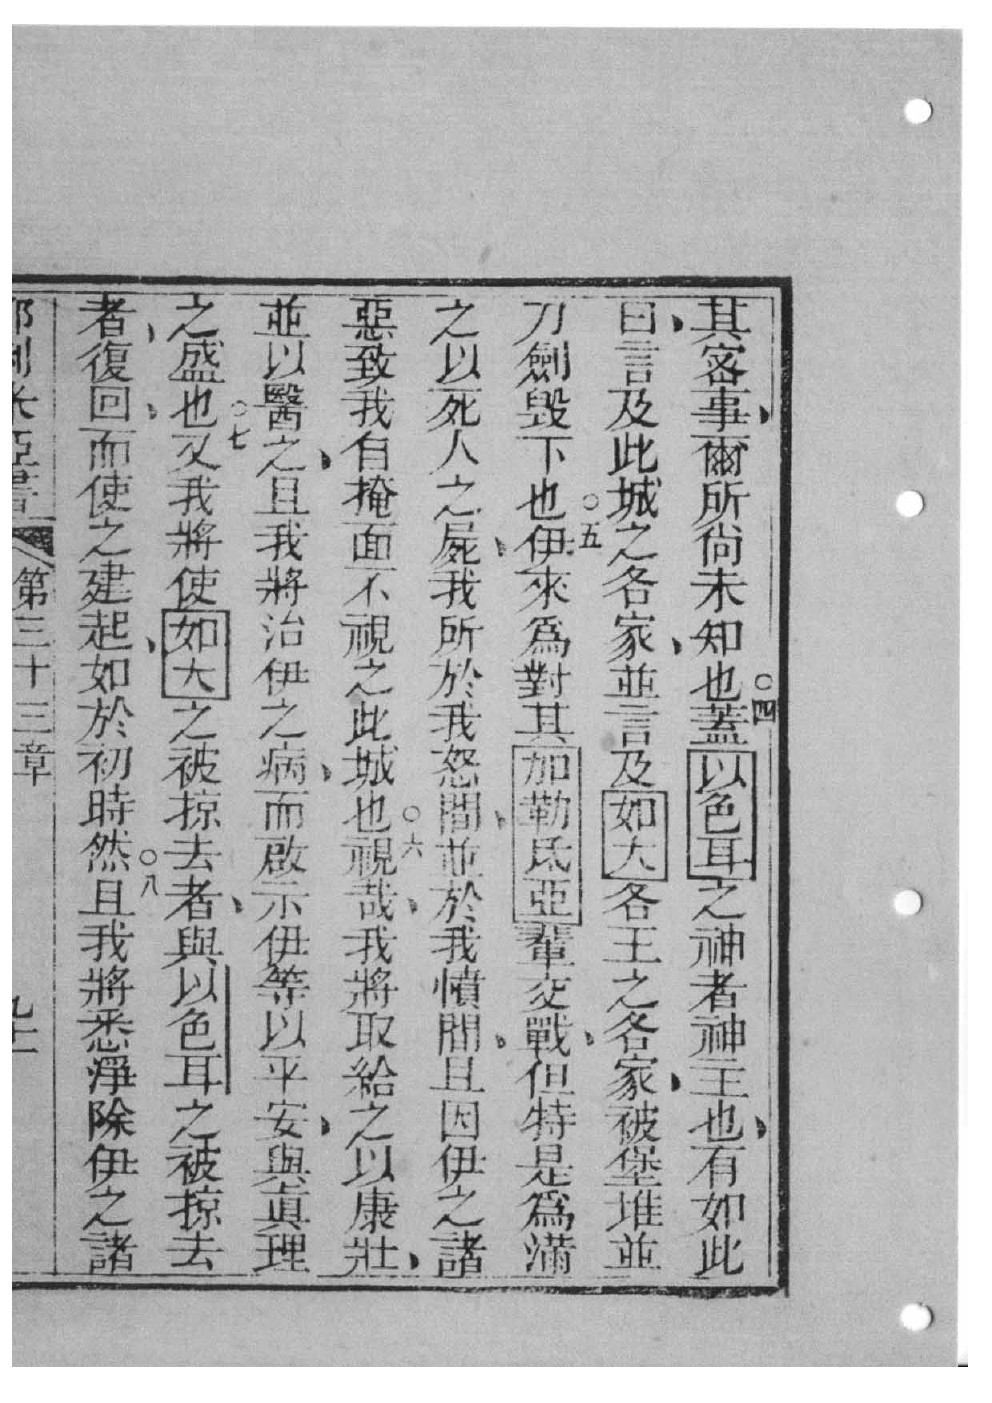 其密事爾所尚未知也○四蓋以色耳之神者神主也有如此
曰言及此城之各家並言及如大各王之各家被堡堆並
刀劍毀下也○五伊來爲對其加勒氐亞輩交戰但特是爲滿
之以死人之屍我所於我怒間並於我憤間且因伊之諸
惡致我自掩面不視之此城也○六視哉我將取給之以康壯
並以醫之且我將治伊之病而啟示伊等以平安與眞理
之盛也○七又我將使如大之被掠去者與以色耳之被掠去
者復回而使之建起如於初時然○八且我將悉淨除伊之諸
耶利米亞書 第三十三章